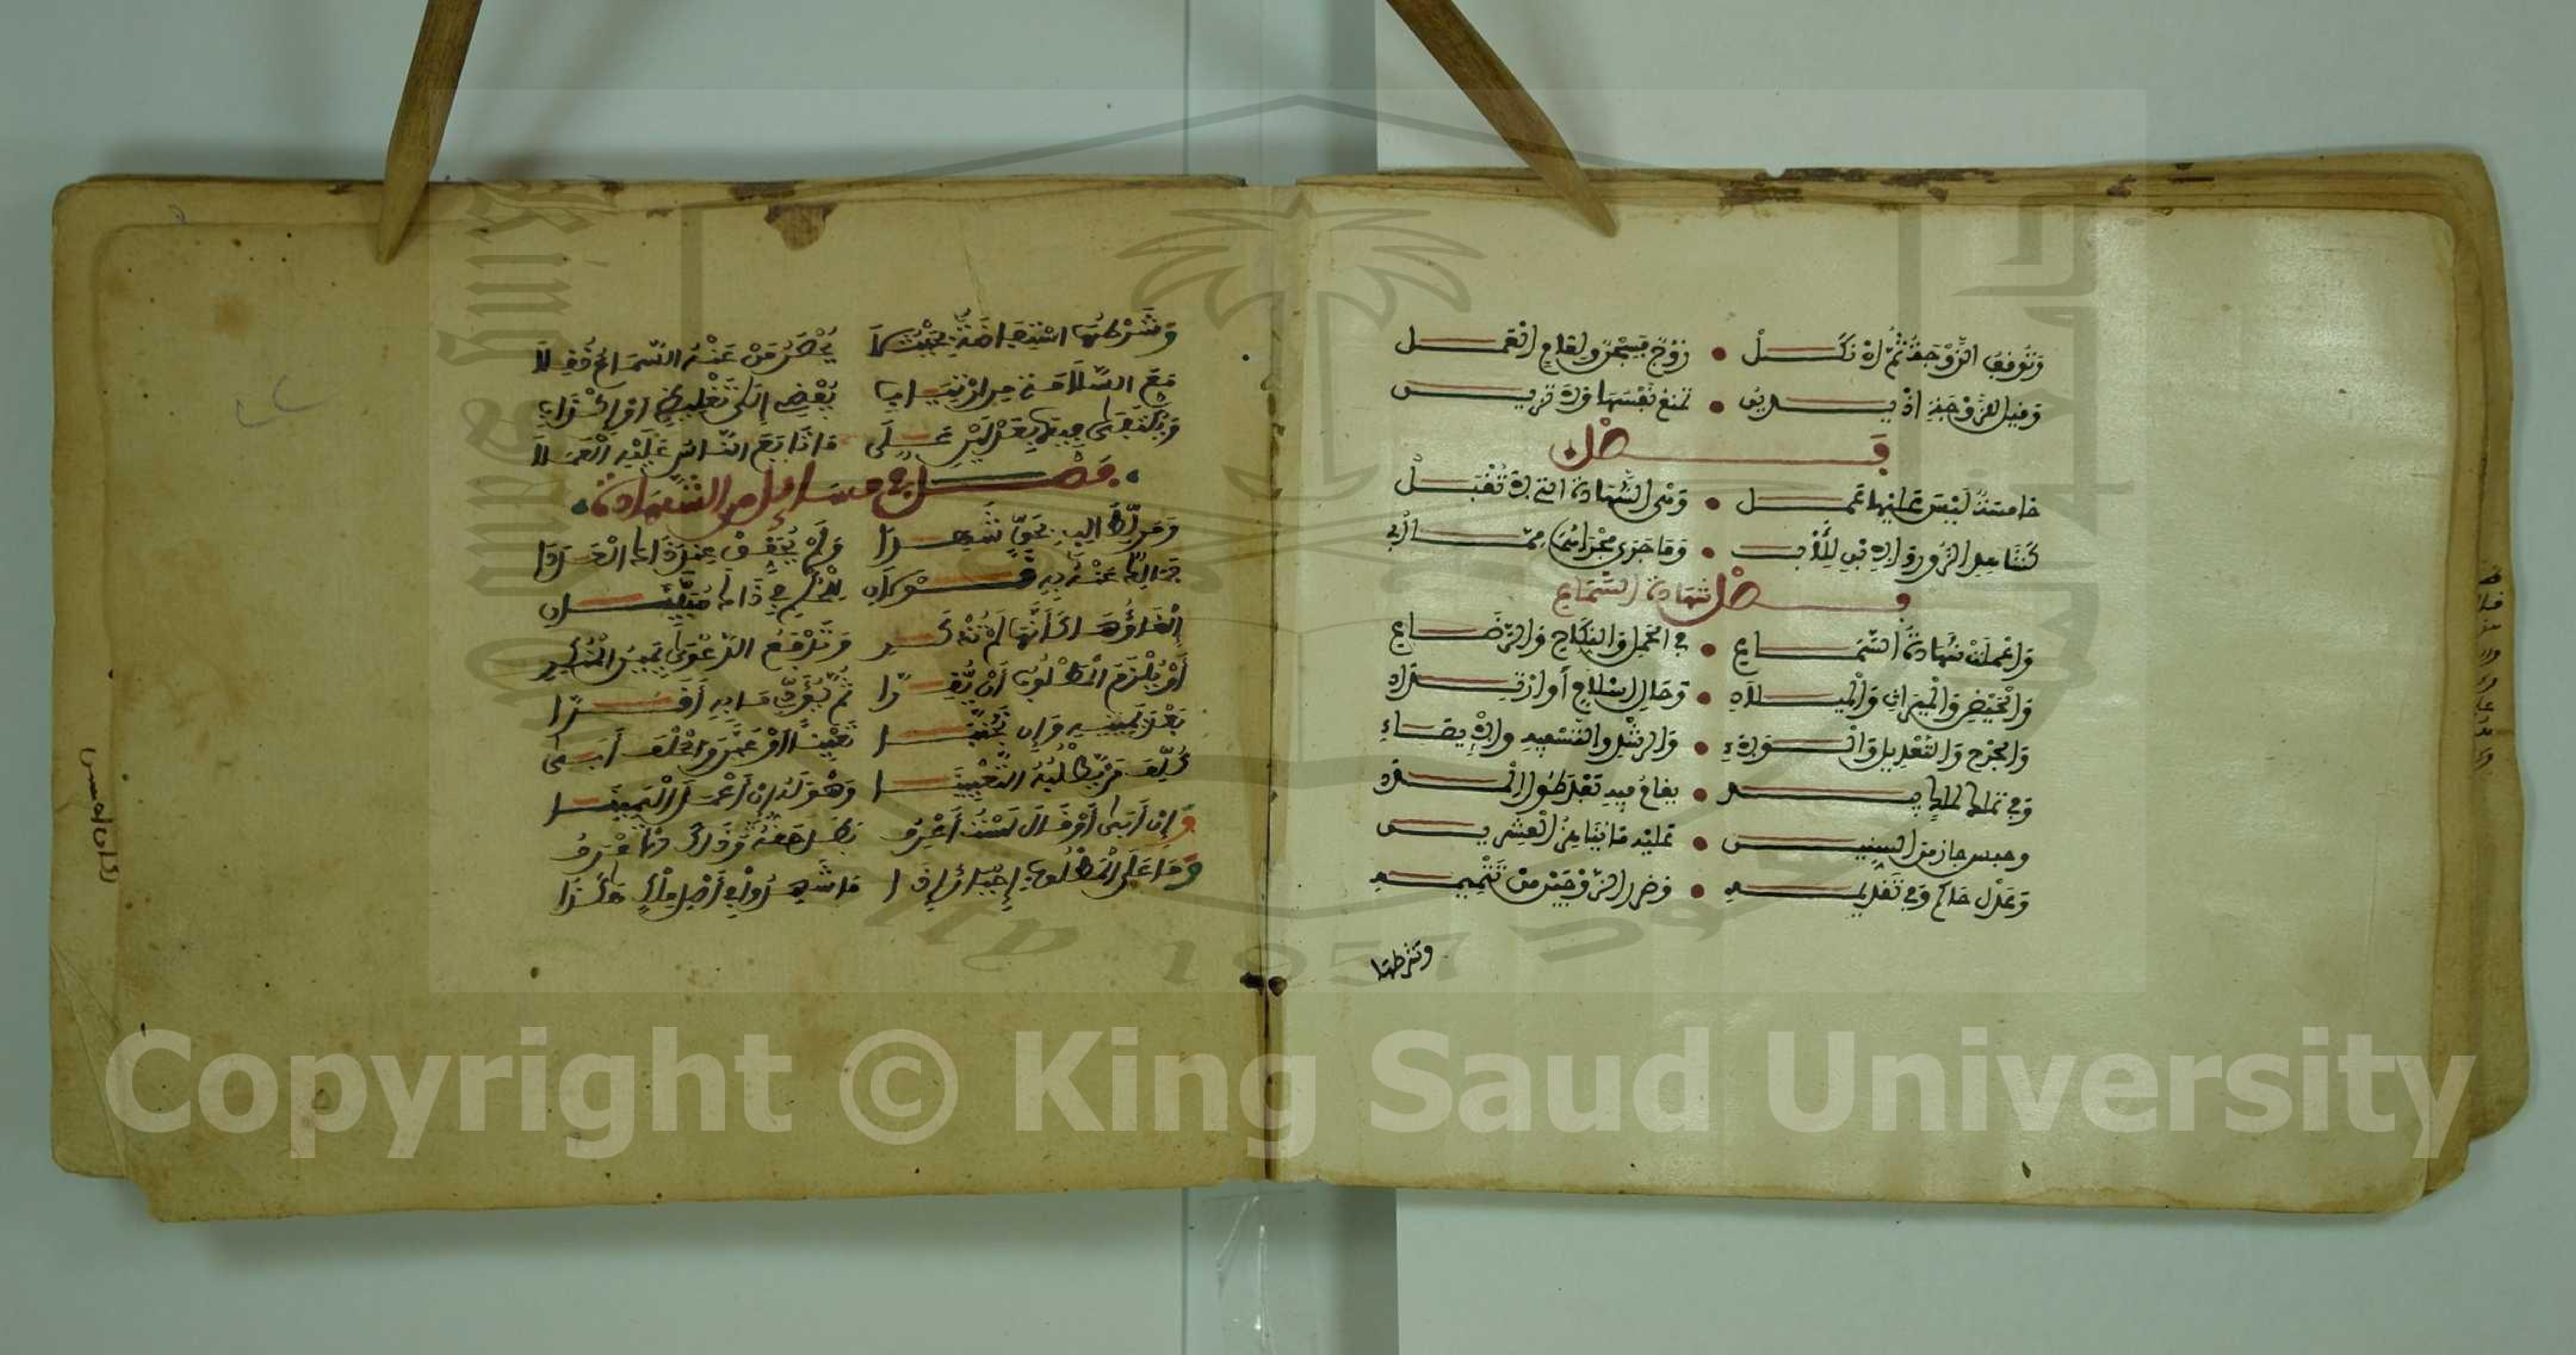 وَتُوقَفُ الزَّوْجَةُ ثُمَّ إِنْ نَكَلْ • زَوْجٌ فَسِجْنٌ وَلِعَامٍ الْعَمَل
وَقِيلَ لِلزَّوْجَةِ إِذْ يُدَيَّنُ • تَمْنَعُ نَفْسَهَا وَلَا تَزَيَّنُ
فَصْل
خَامِسَةٌ لَيْسَ عَلَيْهَا عَمَل • وَهْيَ الشَّهَادَةُ الَّتِي لَا تُقْبَل
كَشَاهِدِ الزُّورِ وَالِابْنِ لِلْأَب • وَمَا جَرَى مَجْرَاهُمَا مِمَّا أُبِي
فَصْل شهادة السَّمَاعِ
وَأُعْمِلَتْ شَهَادَةُ السَّمَاعِ • فِي الْحَمْلِ وَالنِّكَاحِ وَالرَّضَاعِ
وَالْحَيْضِ وَالْمِيرَاثِ وَالْمِيلَادِ • وَحَالِ إِسْلَامٍ أَوِ ارْتِدَادِ
وَالْجَرْحِ وَالتَّعْدِيلِ وَالْوَلَاءِ • وَالرُّشْدِ وَالتَّسْفِيهِ وَالْإِيصَاءِ
وَفِي تَمَلُّكٍ لِمِلْكٍ بِيَدِ • يُقَامُ فِيهِ بَعْدَ طُولِ الْمُدَدِ
وحبس جاز من السنين • عليه ما يناهز العشرين
وَعَزْلِ حَاكِمٍ وَفِي تَقْدِيمِهِ • وضرر الزَّوْجَيْنِ مِنْ تَتْمِيمِهِ
وشرطها
وَشَرْطُهَا اسْتِفَاضَةٌ بِحَيْثُ لَا يُحْصَرُ مَنْ عَنْهُ السَّمَاعُ نُقِلَا
مَعَ السَّلَامَةِ مِنِ ارْتِيَابِ يُفْضِي إِلَى تَغْلِيطٍ أَوْ إِكْذَابِ
وَيُكْتَفَى فِيهَا بِعَدْلَيْنِ عَلَى مَا تَابَعَ النَّاسُ عَلَيْهِ الْعَمَلَا
فَصْل في مسائل من الشهادة
وَمَنْ لِطَالِبٍ بِحَقٍّ شَهِدَا وَلَمْ يُحَقِّقْ عِنْدَ ذَاكَ الْعَدَدَا
فَمَالِكٌ عَنْهُ بِهِ قَوْلَانِ لِلْحُكْمِ فِي ذَاكَ مُبَيَّنَانِ
إِلْغَاؤُهَا كَأَنَّهَا لَمْ تُذْكَرِ وَتُرْفَعُ الدَّعْوَى يَمِينَ الْمُنْكِرِ
أَوْ يُلْزَمُ الْمَطْلُوبُ أَنْ يُقِرَّا ثُمَّ يُؤَدِّي مَا بِهِ أَقَرَّا
بَعْدَ يَمِينِهِ وَإِنْ تَجَنَّبَا تَعْيِينًا أَوْ عَيَّنَ وَالْحَلْفَ أَبَى
كُلِّفَ مَنْ يَطْلُبُهُ التَّعْيِينَا وَهْوَ لَهُ إِنْ أَعْمَلَ الْيَمِينَا
وَإِنْ أَبَى أَوْ قَالَ لَسْتُ أَعْرِفُ بَطَلَ حَقُّهُ وَذَاكَ الْأَعْرَفُ
وَمَا عَلَى الْمَطْلُوبِ إِجْبَارٌ إِذَا مَا شَهِدُوا فِي أَصْلِ مِلْكٍ هَكَذَا
Copyright © King Saud University